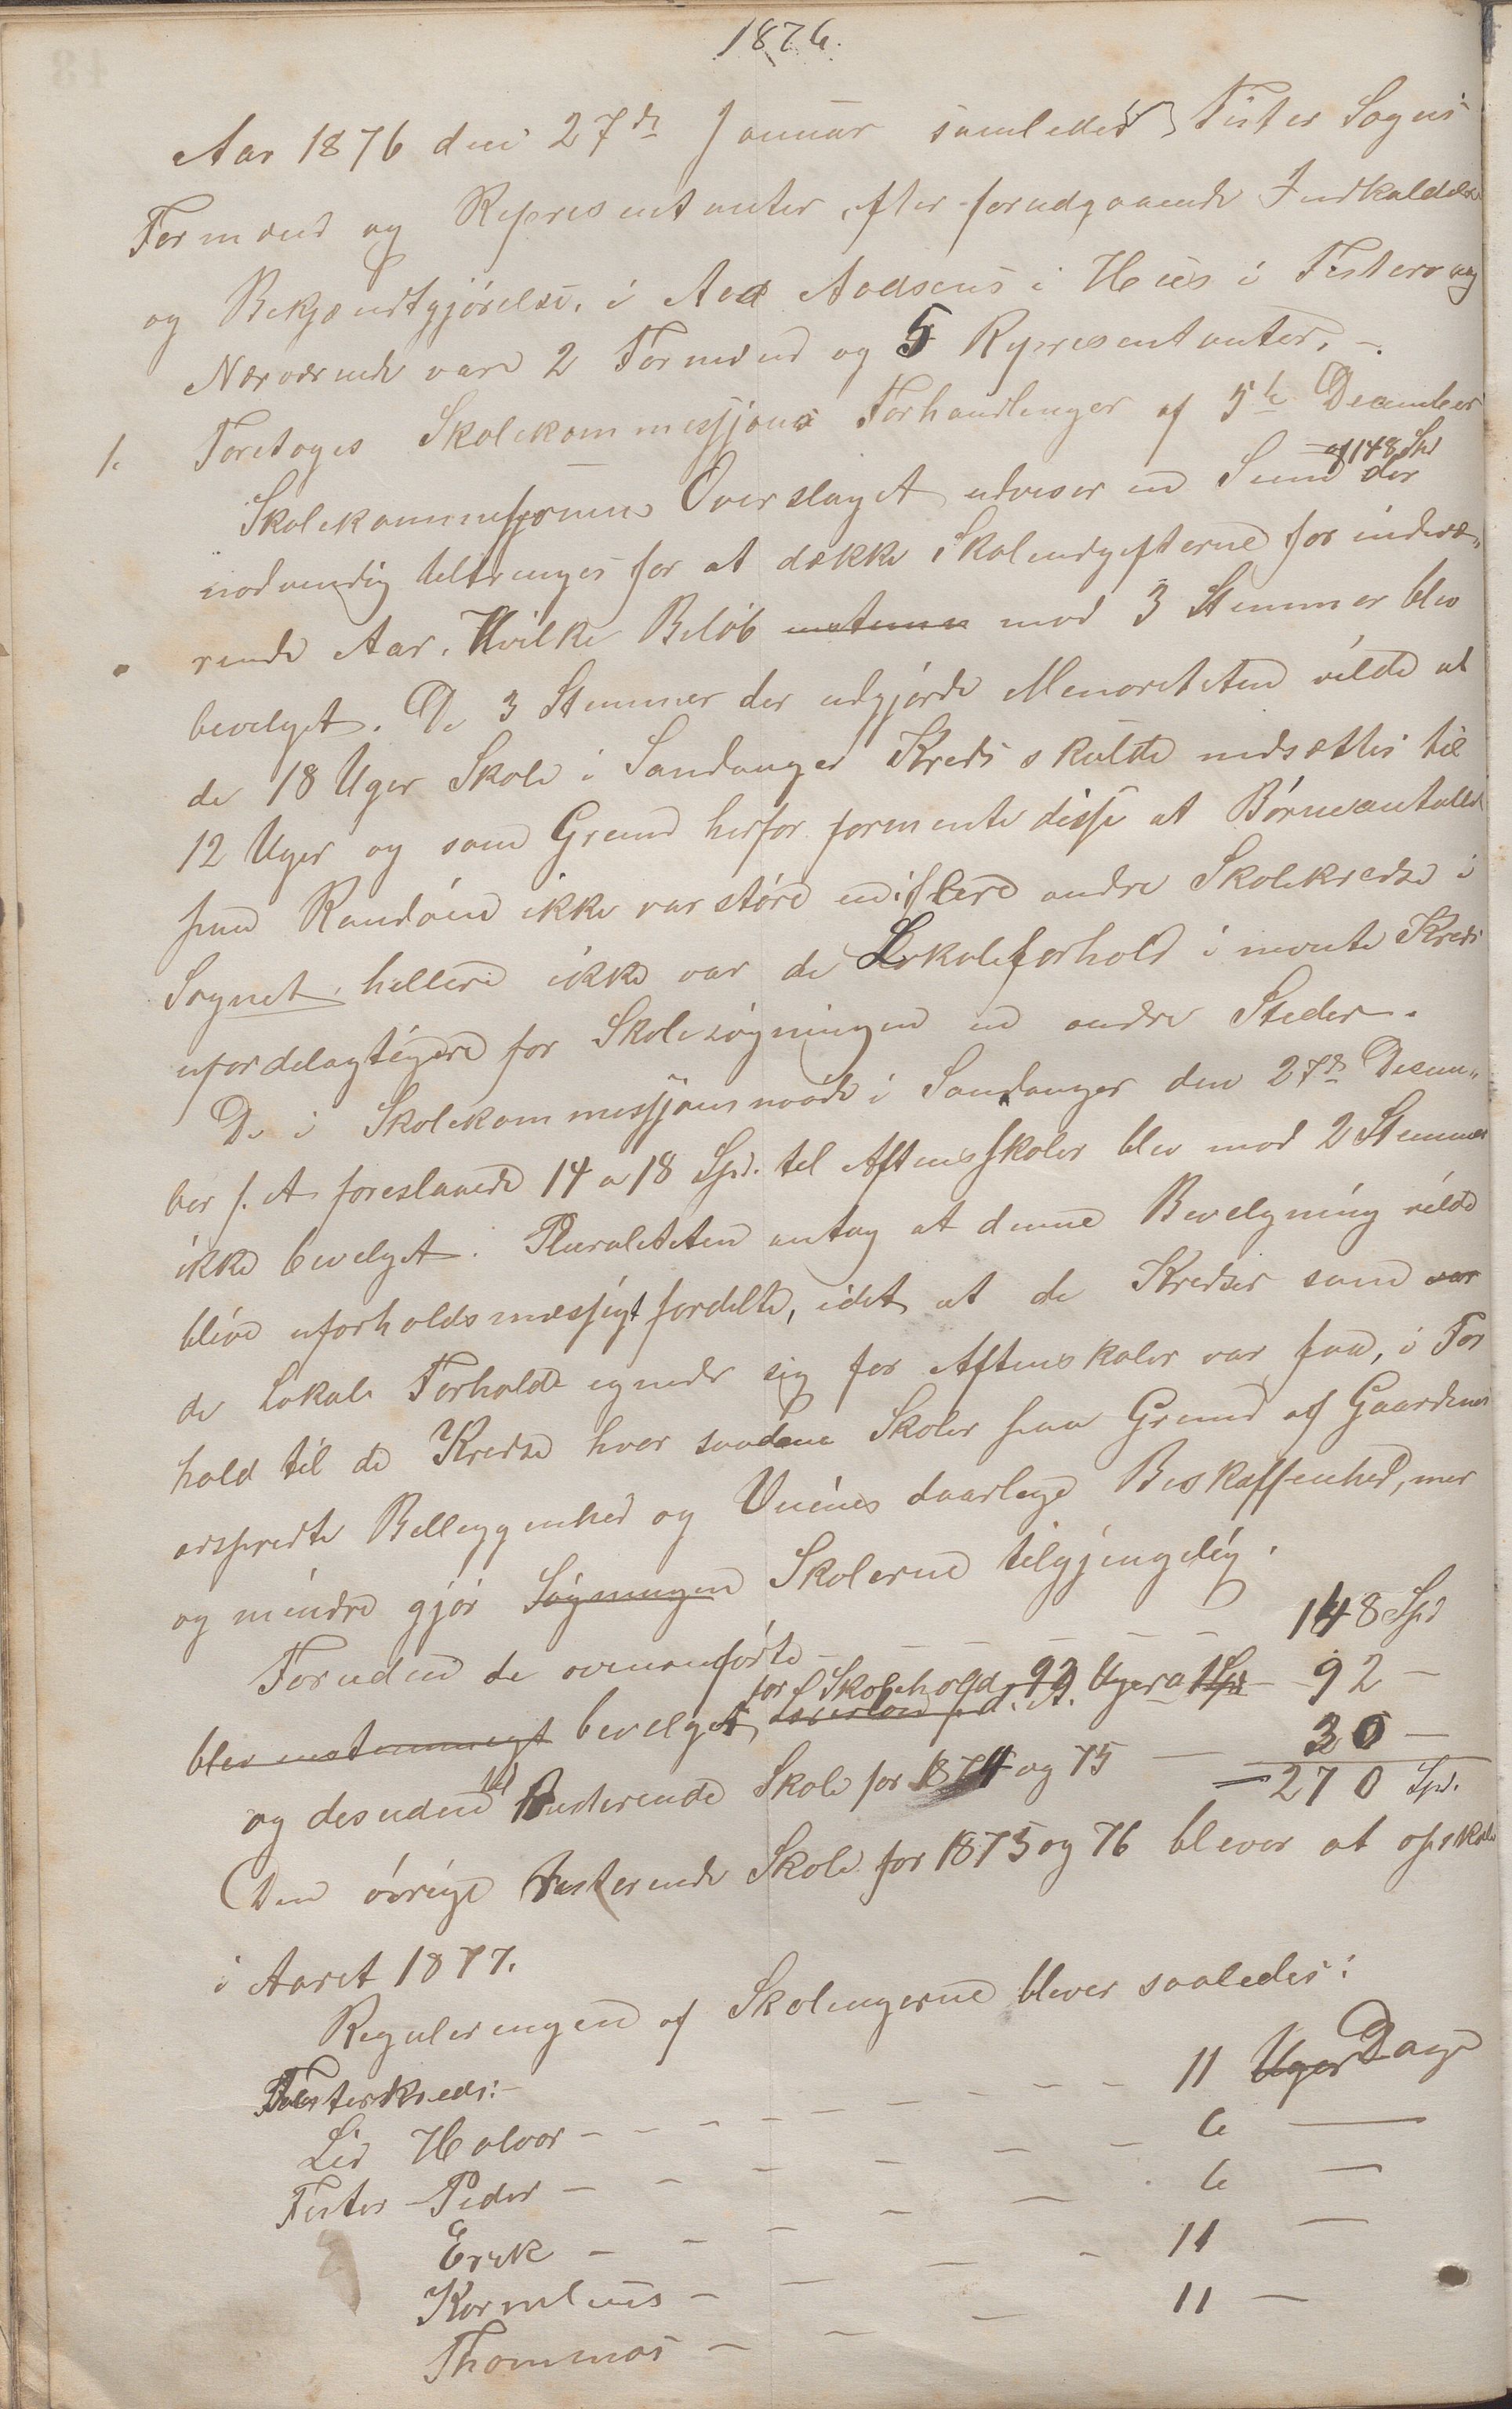 1876.
Aar 1876 den 27de Januar samledes Fister Sogns
Formænd og Representanter, efter forudgaaende Indkaldelse
og Bekjendtgjörelse, i Aad Aadsens i Hus i Fister og
Nærværende vare 2 Formænd og 5 Representanter. –
1. Foretoges Skolekommissjons Forhandlinger af 5te December
Skolekommissjonens Overslaget udviser en Sum af 148 Spd der
nødvendig tiltrenges for at dække Skoleudgifterne for indevæ„
rende Aar. Hvilke Belöb enstemm mod 3 Stemmer blev
bevelget. De 3 Stemmer der udgjörde Menoreteten vilde at
de 18 Uger Skole i Sandanger Kreds skulde nedsættes til
12 Uger og som Grund herfor formente disse at Börneantallet
paa Randöen ikke var störe en i flere andre Skolekredse i
Sognet, hellere ikke var de Lokaleforhold i nævnte Kreds
ufordelagtigere for Skolesögningen en andre Steder.
De i Skolekommissjonsmöde i Sandanger den 27de Decem„
ber f. A. foreslaaede 14 a 18 Spd. til Aftensskoler blev mod 2 Stemmer
ikke bevelget. Pluraliteten antag at denne Bevelgning vilde
blive uforholdsmæssigt fordelte, idet at de Kredser som var
de Lokale Forholde egnede sig for Aftenskoler var faa, i For
hold til de Kredse hvor saadane Skoler paa Grund af Gaardenes
adspredte Belleggenhed og Veienes daarlige Beskaffenhed, mer
og mindre gjör Sögningen Skolerne tilgjengelig.
Foruden de ovenanförte – – – – – 148 Spd
blev enstemmigt bevelget for Skolehold 92 Uger a 1 Spd – 92 –
og desuden til Resterende Skole for 1874 og 75 – 30 –
= 270 Spd.
Den övrige Resterende Skole for 1875 og 76 blever at opskole
i Aaret 1877.
Reguleringen af Skolengerne blever saaledes:
Fisterkreds:–
Lid Halvor – – – – – – – – 11 Uger Dage
Fister – Peder – – – – – – 6 —
Erik – – – – – 6 —
Kornelius – – – – – 11 —
Thommas – – – 11 —